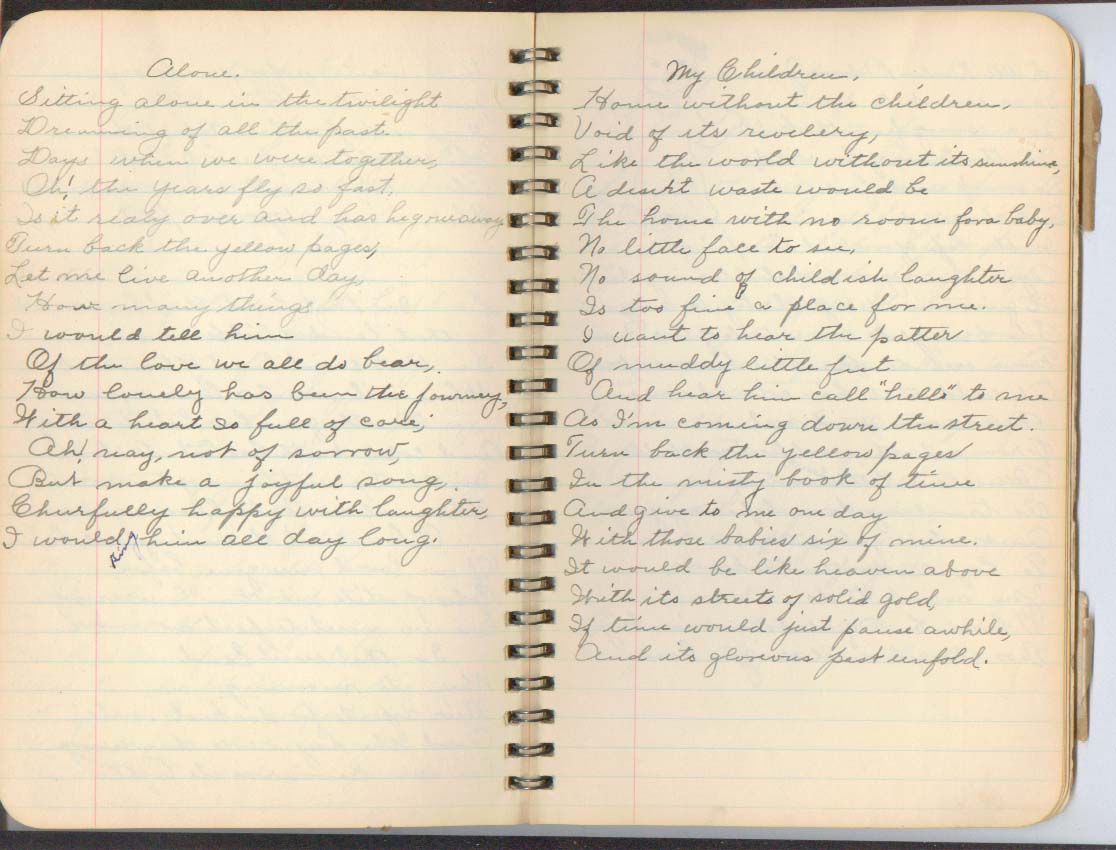 Alone.
Sitting alone in the twilight
Dreaming of all the past.
Days when we were together,
Oh! the years fly so fast.
Is it realy over and has he gone away
Turn back the yellow pages,
Let me live another day,
How many things
I would tell him
Of the love we all do bear,
How lonely has been the journey,
With a heart so full of care,
Ah! nay, not of sorrow,
But make a joyful song,
Cheerfully happy with laughter,
I would sing him all day long.
My Children.
Home without the children,
Void of its revelery,
Like the world without its sunshine,
A desert waste would be
The home with no room for a baby,
No little face to see,
No sound of childish laughter
Is too fine a place for me.
I want to hear the patter
Of muddy little feet
And hear him call "hello" to me
As I'm coming down the street.
Turn back the yellow pages
In the misty book of time
And give to me one day
With those babies six of mine.
It would be like heaven above
With its streets of solid gold,
If time would just pause awhile,
And its glorious past unfold.